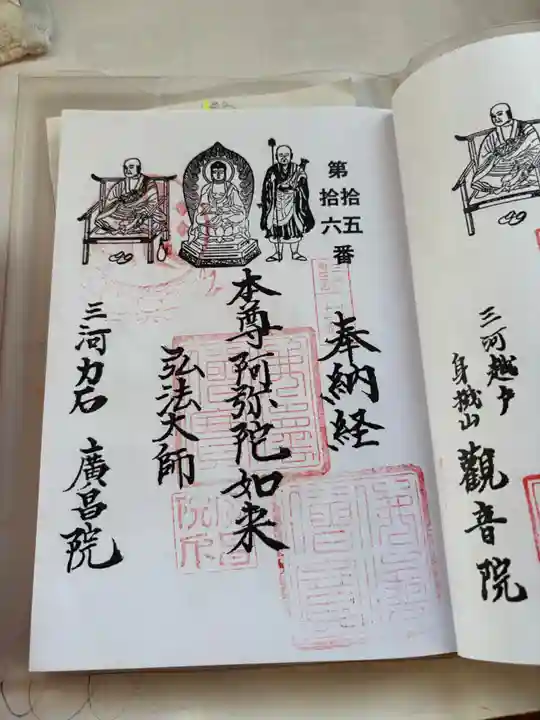 第拾五
拾六番
奉納経
本尊阿弥陀如来
弘法大師
三河力石 廣昌院
三河越戸
身掛山
觀音院